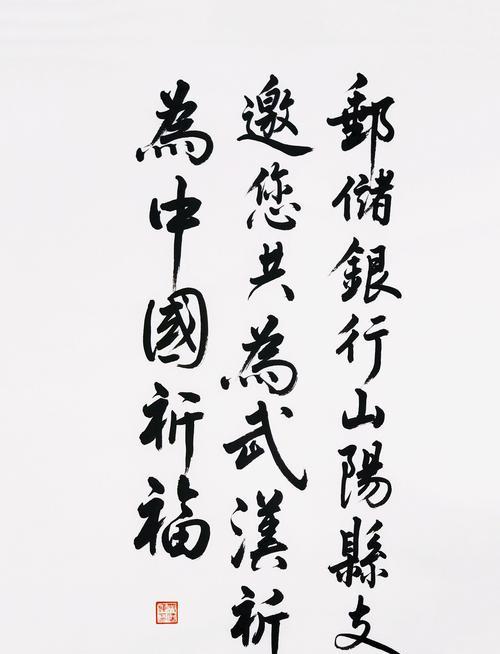 郵儲銀行山陽縣支
邀您共為武漢祈
為中國祈福